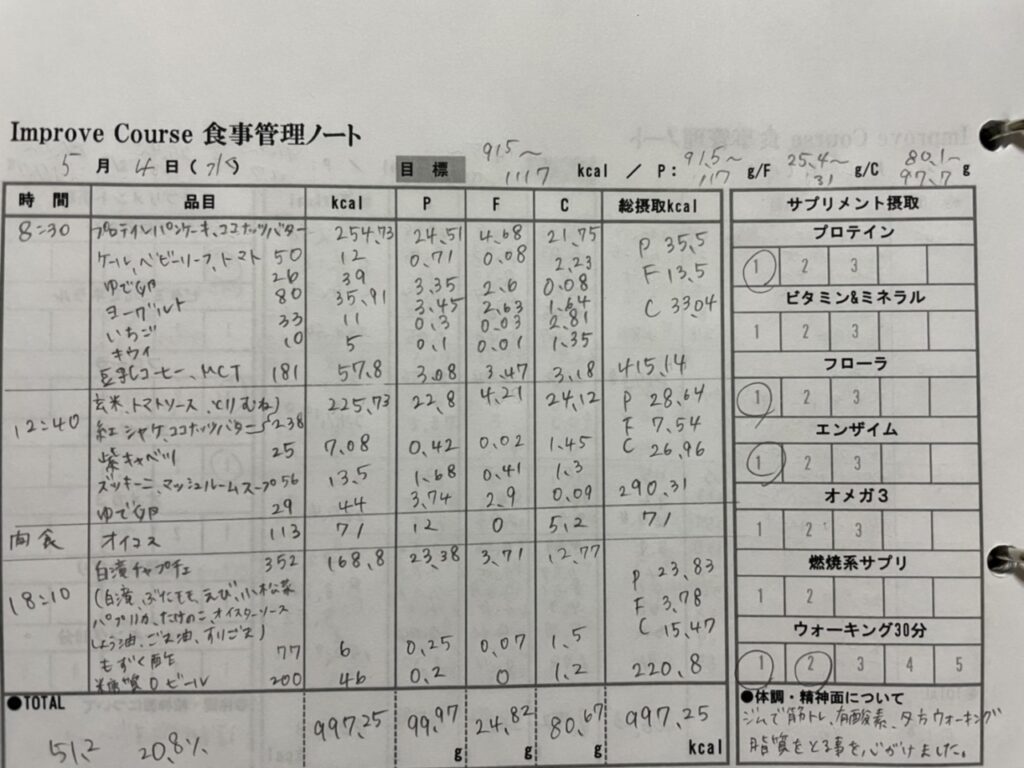 Improve Course 食事管理ノート
5 月 4 日 ( ) 目標 915~1117 kcal / P: 91.5~117 g/F 25.4~31 g/C 80.1~97.7 g
時間 品目 kcal P F C 総摂取kcal
8:30 プロテインパンケーキ、ココナッツバター 254.73 24.51 4.68 21.75 P 35.5
ケール、ベビーリーフ、トマト 50 12 0.71 0.08 2.23 F 13.5
ゆで卵 26 39 3.35 2.6 0.08
ヨーグルト 80 35.91 3.45 2.63 1.64 C 33.04
いちご 33 11 0.3 0.03 2.81
キウイ 10 5 0.1 0.01 1.35
豆乳コーヒー、MCT 181 57.8 3.08 3.47 3.18 415.14
12:40 玄米、トマトソース、とりむね 225.73 22.8 4.21 24.12 P 28.64
紅シャケ、ココナッツバター 238 F 7.54
紫キャベツ 25 7.08 0.42 0.02 1.45 C 26.96
ズッキーニ、マッシュルームスープ 56 13.5 1.68 0.41 1.3
ゆで卵 29 44 3.74 2.9 0.09 290.31
間食 オイコス 113 71 12 0 5.2 71
18:10 白滝チャプチェ 352 168.8 23.38 3.71 12.77 P 23.83
(白滝、ぶたもも、えび、小松菜 F 3.78
パプリカ、たけのこ、オイスターソース
しょう油、ごま油、すりごま) C 15.47
もずく酢 77 6 0.25 0.07 1.5
糖質0ビール 200 46 0.2 0 1.2 220.8
●TOTAL 997.25 99.97 g 24.82 g 80.67 g 997.25 kcal
51.2 20.8%
サプリメント摂取
プロテイン
1 2 3
ビタミン&ミネラル
1 2 3
フローラ
1 2 3
エンザイム
1 2 3
オメガ3
1 2 3
燃焼系サプリ
1 2
ウォーキング30分
1 2 3 4 5
●体調・精神面について
ジムで筋トレ、有酸素、夕方ウォーキング
脂質をとる事を心がけました。